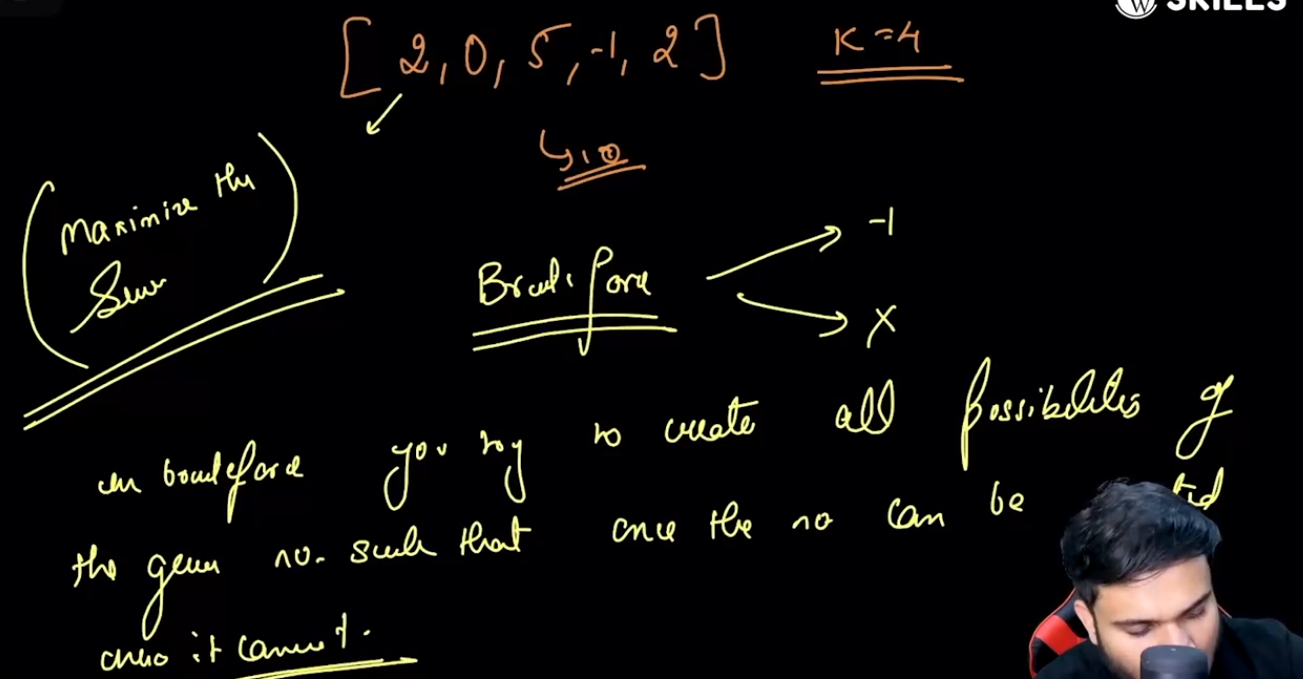 W SKILLS
[2, 0, 5, -1, 2] K=4
↳ 10
(Maximize the
Sum)
Bruteforce → -1
→ X
in bruteforce you try to create all possibilities of
the given no. such that once the no can be
it cannot.